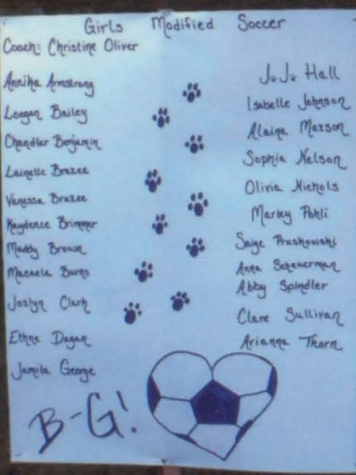 Girls Modified Soccer
Coach: Christine Oliver
Annika Armstrong
Loegan Bailey
Chandler Benjamin
Lainette Brazee
Vanessa Brazee
Kaydence Brimmer
Maddy Brown
Macaela Burns
Joslyn Clark
Ethne Degan
Jamila George
JuJu Hall
Isabelle Johnson
Alaina Maxson
Sophia Nelson
Olivia Nichols
Marley Pohli
Saige Prushowski
Anna Scheuerman
Abby Spindler
Clare Sullivan
Arianna Thorn
B-G!